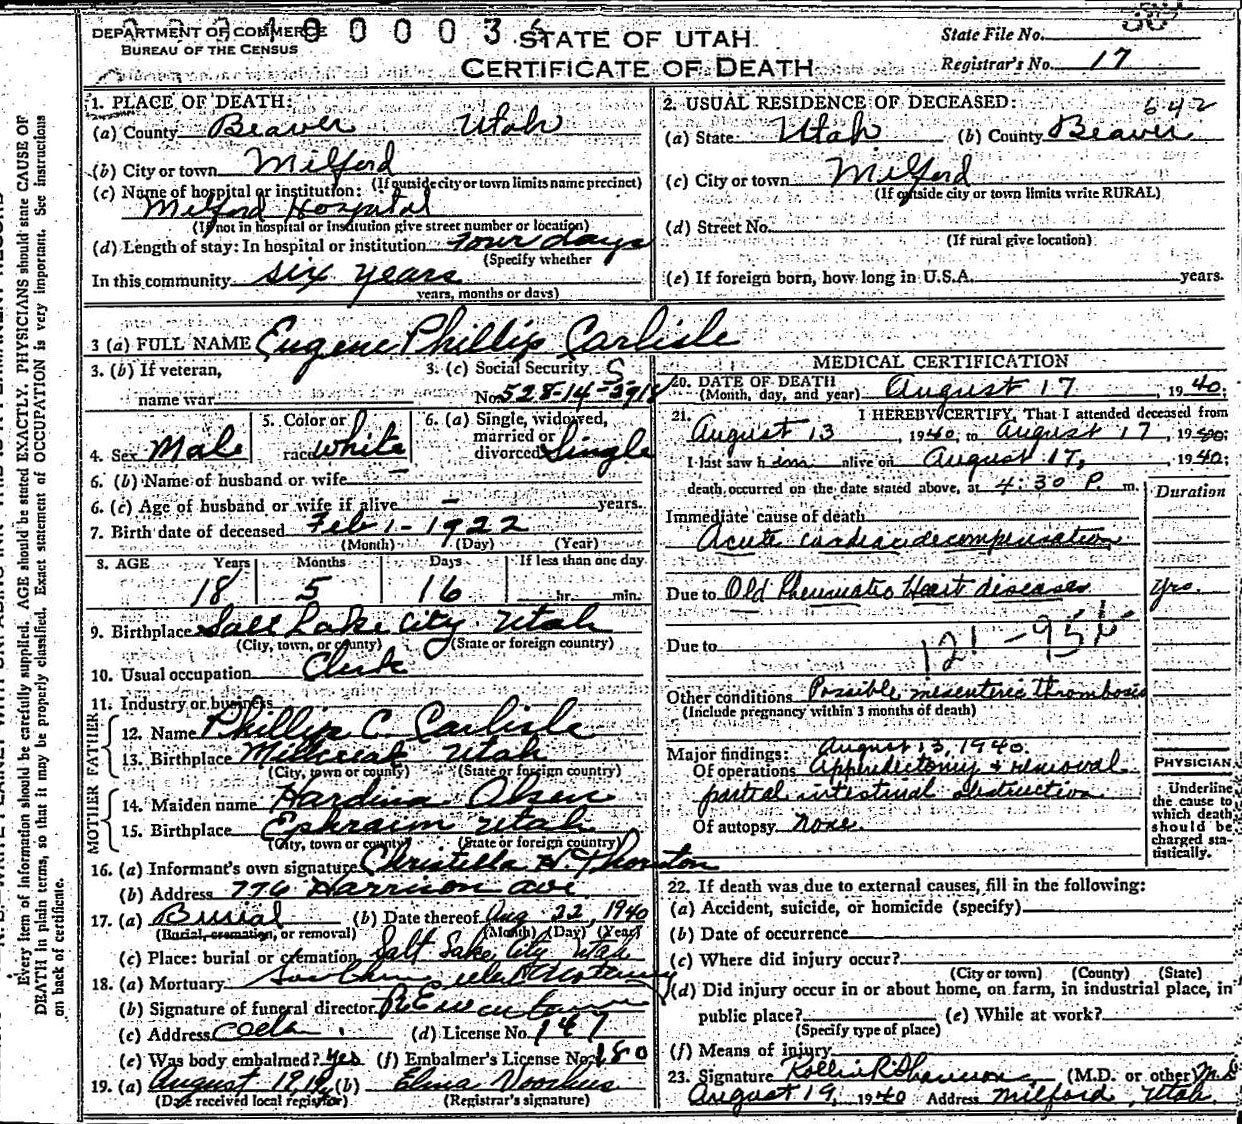 DEPARTMENT OF COMMERCE
BUREAU OF THE CENSUS
STATE OF UTAH
CERTIFICATE OF DEATH
State File No.
Registrar's No. 17
1. PLACE OF DEATH:
(a) County Beaver Utah
(b) City or town Milford
(If outside city or town limits name precinct)
(c) Name of hospital or institution:
Milford Hospital
(If not in hospital or institution give street number or location)
(d) Length of stay: In hospital or institution four days
(Specify whether
In this community six years
years, months or days)
2. USUAL RESIDENCE OF DECEASED: 642
(a) State Utah (b) County Beaver
(c) City or town Milford
(If outside city or town limits write RURAL)
(d) Street No.
(If rural give location)
(e) If foreign born, how long in U.S.A. years.
3 (a) FULL NAME Eugene Phillip Carlisle
3. (b) If veteran,
name war
3. (c) Social Security
No. 528-14-
4. Sex Male
5. Color or
race white
6. (a) Single, widowed,
married or
divorced Single
6. (b) Name of husband or wife —
6. (c) Age of husband or wife if alive — years.
7. Birth date of deceased Feb 1 - 1922
(Month) (Day) (Year)
8. AGE Years Months Days If less than one day
18 5 16 hr. min.
9. Birthplace Salt Lake City Utah
(City, town, or county) (State or foreign country)
10. Usual occupation Clerk
11. Industry or business
FATHER
12. Name Phillip C. Carlisle
13. Birthplace Millcreek Utah
(City, town or county) (State or foreign country)
MOTHER
14. Maiden name Hardina Olsen
15. Birthplace Ephraim Utah
(City, town or county) (State or foreign country)
16. (a) Informant's own signature Christella H. Thornton
(b) Address 776 Harrison ave
17. (a) Burial (b) Date thereof Aug 22, 1940
(Burial, cremation, or removal) (Month) (Day) (Year)
(c) Place: burial or cremation Salt Lake City Utah
18. (a) Mortuary
(b) Signature of funeral director
(c) Address (d) License No. 147
(e) Was body embalmed? yes (f) Embalmer's License No. 180
19. (a) August 19 (b) Elma Voorhees
(Date received local registrar) (Registrar's signature)
MEDICAL CERTIFICATION
20. DATE OF DEATH
(Month, day, and year) August 17, 1940;
21. I HEREBY CERTIFY, That I attended deceased from
August 13, 1940, to August 17, 1940;
I last saw him alive on August 17, 1940;
death occurred on the date stated above, at 4:30 P. m.
Duration
Immediate cause of death
Acute cardiac decompensation
Due to Old Rheumatic Heart diseases yrs.
Due to
121 -
Other conditions Possible mesenteric thrombosis
(Include pregnancy within 3 months of death)
Major findings: August 13, 1940.
Of operations Appendectomy & removal
partial intestinal obstruction
Of autopsy none.
PHYSICIAN
Underline
the cause to
which death
should be
charged sta-
tistically.
22. If death was due to external causes, fill in the following:
(a) Accident, suicide, or homicide (specify)
(b) Date of occurrence
(c) Where did injury occur?
(City or town) (County) (State)
(d) Did injury occur in or about home, on farm, in industrial place, in
public place? (e) While at work?
(Specify type of place)
(f) Means of injury
23. Signature (M.D. or other) M.D.
August 19, 1940 Address Milford, Utah.
Every item of information should be carefully supplied. AGE should be stated EXACTLY. PHYSICIANS should state CAUSE OF
DEATH in plain terms, so that it may be properly classified. Exact statement of OCCUPATION is very important. See instructions
on back of certificate.